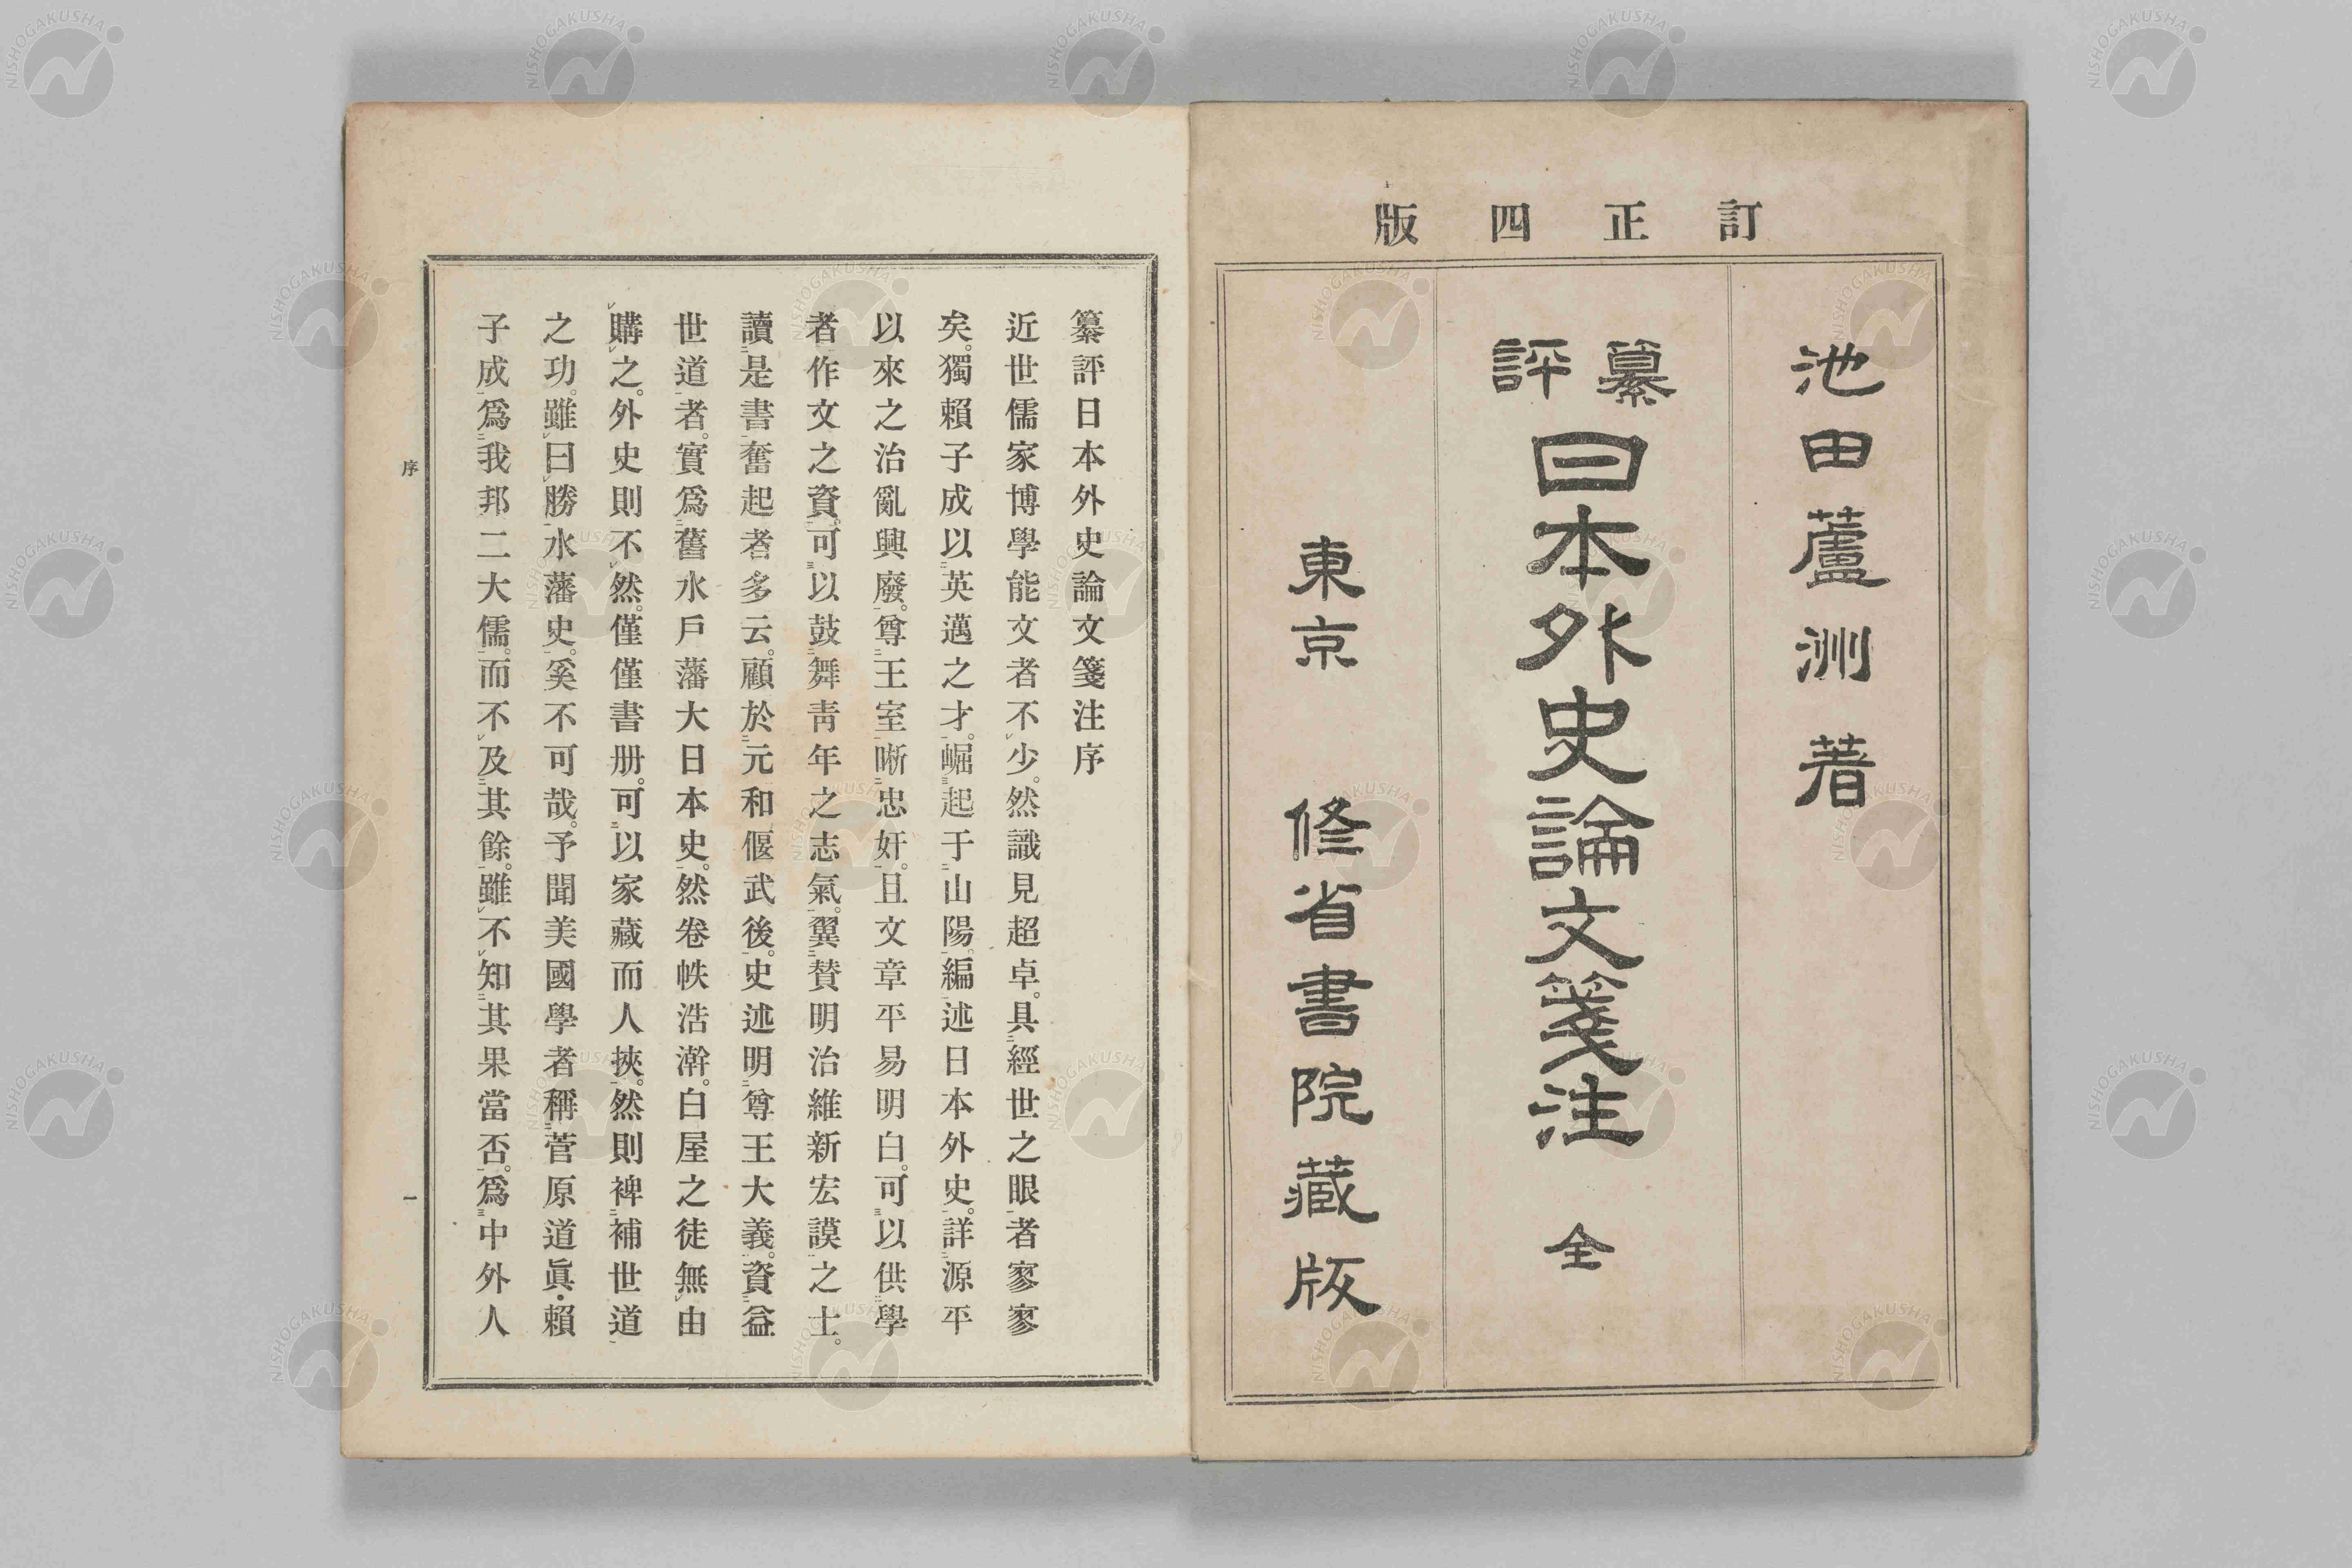 訂正四版
池田蘆洲著
纂評
日本外史論文箋注 全
東京 修省書院藏版
纂評日本外史論文箋注序
近世儒家博學能文者不レ少。然識見超卓。具二經世之眼一者寥寥
矣。獨賴子成以二英邁之才一。崛二起于山陽一。編二述日本外史一。詳二源平
以來之治亂興廢一。尊二王室一晰二忠奸一。且文章平易明白。可三以供二學
者作文之資一。可三以鼓二舞靑年之志氣一。翼二贊明治維新宏謨一之士。
讀二是書一奮起者多云。顧於二元和偃武後一。史述明二尊王大義一。資二益
世道一者。實爲二舊水戶藩大日本史一。然卷帙浩澣。白屋之徒無レ由
レ購レ之。外史則不レ然。僅僅書册。可二以家藏而人挾一。然則裨二補世道一
之功。雖レ曰レ勝二水藩史一。奚不可哉。予聞美國學者稱二菅原道眞・賴
子成一爲二我邦二大儒一。而不レ及二其餘一。雖レ不レ知二其果當否一。爲三中外人
序
一
NISHOGAKUSHA